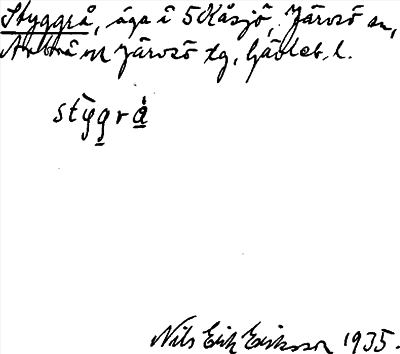 Styggrå, äga i 5 Kåsjö, Järvsö sn,
Arbrå o Järvsö tg, Gävleb. l.
stỳgrå
Nils Erik Eriksson 1935.